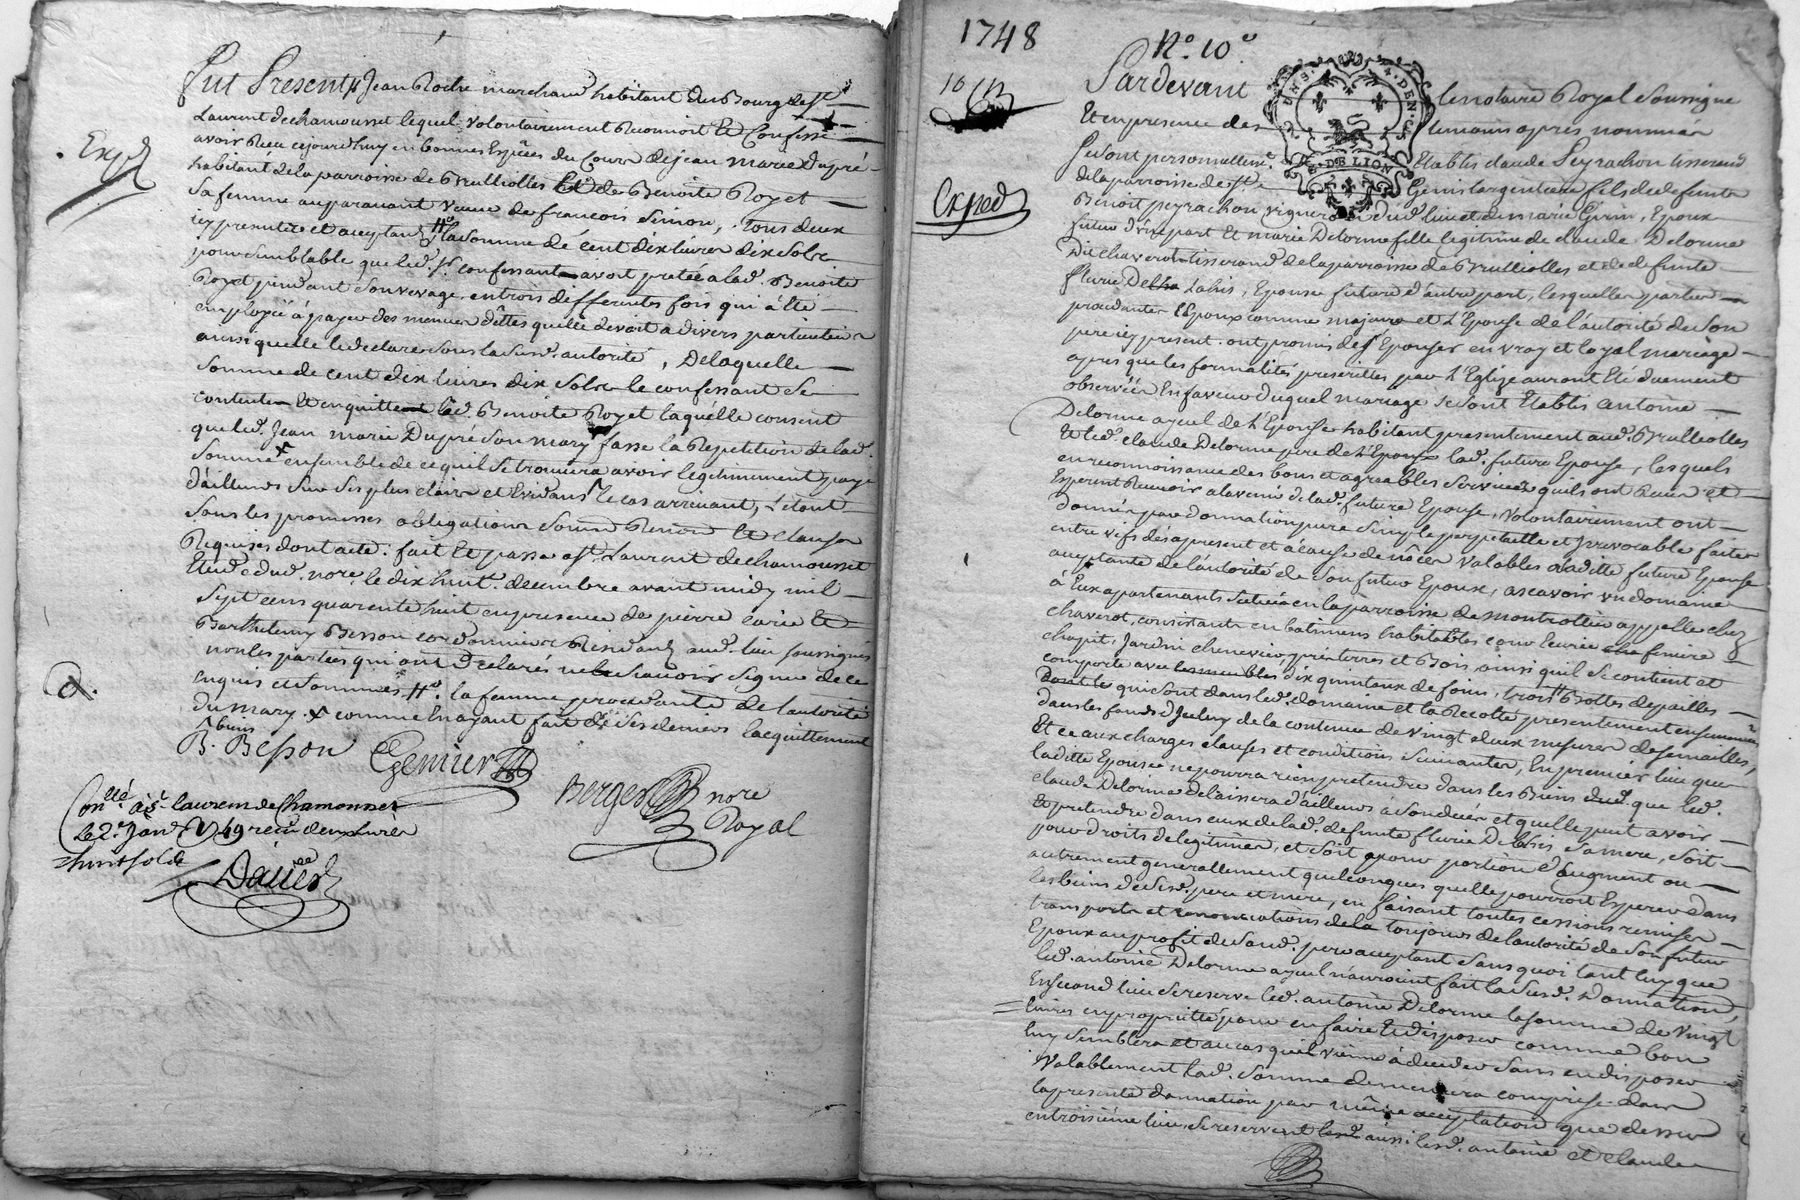 Fut Present Jean Roche marchand habitant du Bourg de St
Laurent de chamousset lequel volontairement Reconnoit et Confesse
avoir Reçu cejourdhuy en bonnes Espèces du Cours de jean marie dupré
habitant de la parroisse de Brulliolles et de Benoite Royet
Sa femme auparavant veuve de francois Simon, tous deux
icy presents et acceptans la Somme de cent dix livres dix Sols
pour Semblable que led. Sr. confessant avoit pretée a lad. Benoite
Royet pendant Son vevage en trois differentes fois qui a été
employée à payer des menues dêttes quelle devoit a divers particuliers
ainsi quelle le declare Sous la Susd. autorité, De laquelle
Somme de cent dix livres dix Sols le confessant Se
contente Et en quitte lad. Benoite Royet laquelle consent
que led. Jean marie Dupré Son mary fasse la Repetition de lad.
Somme ensemble de ce quil se trouvera avoir legitimement payé
d'ailleurs Sur Ses plus clairs et Evidans le cas arrivant,
Sous les promesses obligations Soum Renon Et clauses
Requises dont acte. fait Et passé a St. Laurent de chamousset
Etude dud. nore. le dix huit. decembre avant midy mil
Sept cens quarente huit en presence de pierre Et
Barthelemy Besson cordonnier Residants aud. lieu soussignés
non les parties qui ont Declarés ne Scavoir Signer de ce
enquis et Sommés. la femme procedante de l'autorité
du mary. comme En ayant fait de Ses deniers lacquittement
B. Besson
Berger nore
Royal
Conllé à St. laurent de Chamousset
Le 2e. Janv 1749 reçu
huit sols
Expd
1748
No. 10e
Expéd
Pardevant le notaire Royal Soussigné
Et en presence des temoins après nommés
Se Sont personnellemt. Etablis claude Peyrachon tisserand
de la parroisse de St. Genis largentiere fils de defunt
Benoit peyrachon vigneron dud. lieu et de marie Girin, Epoux
futur d'une part Et marie Delorme fille legitime de claude Delorme
Dit chaverot tisserand de la parroisse de Brulliolles et de defunte
flurie Epouse future d'autre part, lesquelles parties
procedantes l'Epoux comme majeur et l'Epouse de l'autorité de Son
pere icy present. ont promis de S'Epouser en vray et loyal mariage
apres que les formalités prescrittes par l'Eglize auront Eté duement
observées En faveur duquel mariage se Sont Etablis antoine
Delorme ayeul de l'Epouse habitant presentement aud. Brulliolles
Et led. claude Delorme pere de lad. future Epouse, lesquels
en reconnoissance des bons et agreables Services quils ont Reçu et
Esperent Recevoir a lavenir de lad. future Epouse, volontairement ont
donné par donnation pure Simple perpetuelle et Irrevocable faite
entre vifs dès a present et à cause de noces valables a ladite future Epouse
acceptante de l'autorité de Son futur Epoux, ascavoir un domaine
à Eux appartenants Situé en la parroisse de montrottier appellé chez
chaverot, consistant en batimens habitables cour Ecurie feniere
chapit, Jardin chenevier, prés terres et Bois ainsi quil Se contient et
comporte avec dix quintaux de foin, trois Bottes de pailles
qui sont dans led. domaine et la Recolte presentement ensemencée
dans les fonds d'Jceluy de la contenue de vingt deux mesures de Semailles,
Et ce aux charges clauses et conditions Suivantes, En premier lieu que
ladite Epouse ne pourra rien pretendre dans les Biens que led.
claude Delorme delaissera d'ailleurs à Son decès et quelle peut avoir
Et pretendre dans ceux de lad. defunte flurie Sa mere, Soit
pour droits de legitimes, et Soit pour portion d'augment ou
autrement generallement quelconques quelle pourroit Esperer dans
les biens de Sesd. pere et mere, en faisant toutes cessions remises
transports et renonciations toujours de l'autorité de Son futur
Epoux au profit de Sond. pere acceptant Sans quoi tant luy que
led. antoine Delorme ayeul n'auroient fait la Susd. Donnation,
En Second lieu Se reserve led. antoine Delorme la Somme de vingt
livres en proprieté pour en faire Et disposer comme bon
luy Semblera et au cas quil vienne à deceder Sans en disposer
valablement lad. Somme demeurera comprise dans
la presente donnation par même acceptation que dessus
en troisieme lieu Se reservent aussi lesd. antoine et claude